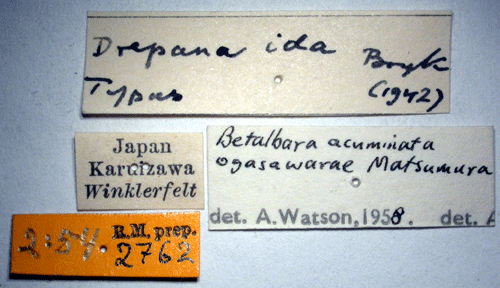 Drepana ida Bryk
Typus (1942)
Japan
Karuizawa
Winklerfelt
Betalbara acuminata
ogasawarae Matsumura
det. A. Watson, 1958. det. A
2:54. R.M. prep.
2762